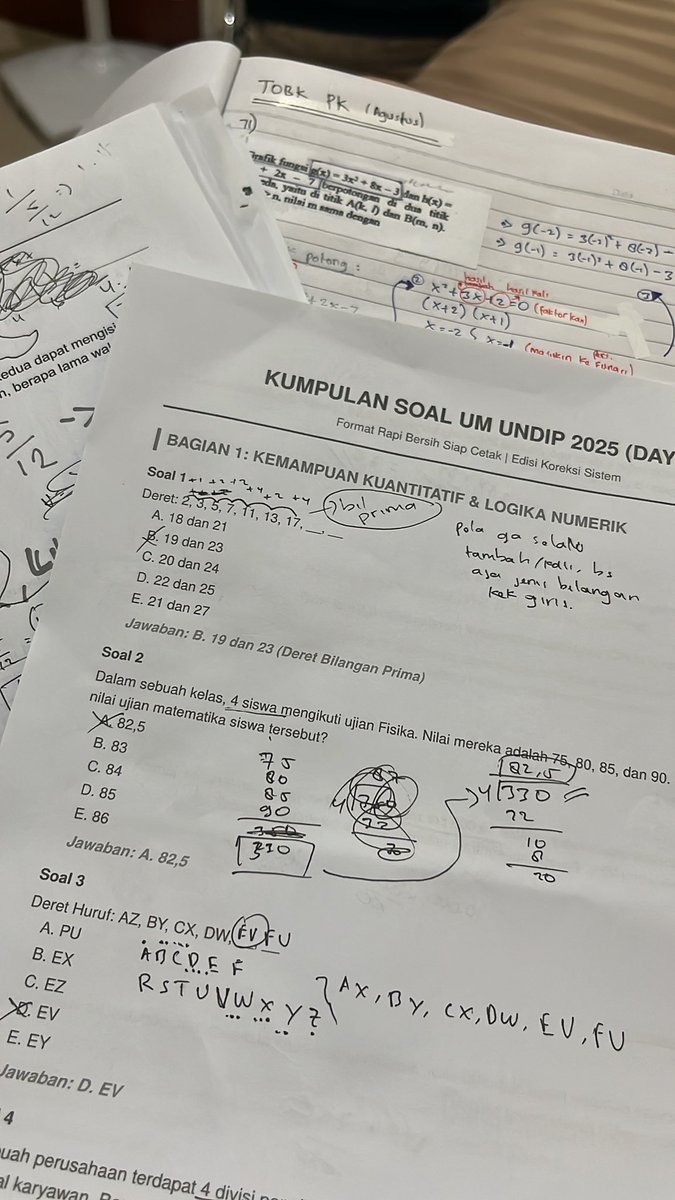 TOBK PK (Agustus)
71)
Grafik fungsi g(x) = 3x² + 8x - 3 dan h(x) =
+ 2x - 7 berpotongan di dua titik
yaitu di titik A(k, l) dan B(m, n).
n, nilai m sama dengan
⇒ g(-2) = 3(-2)² + 8(-2) -
⇒ g(-1) = 3(-1)² + 8(-1) - 3
potong :
+ 2x - 7
② x² + 3x + 2 = 0 (faktorkan)
(x+2) (x+1)
x = -2 x = -1
(masukin ke fungsi)
edua dapat mengisi
n, berapa lama wa
KUMPULAN SOAL UM UNDIP 2025 (DAY
Format Rapi Bersih Siap Cetak | Edisi Koreksi Sistem
BAGIAN 1: KEMAMPUAN KUANTITATIF & LOGIKA NUMERIK
Soal 1
+1 +2 +2 +4 +2 +4
Deret: 2, 3, 5, 7, 11, 13, 17, __, __
bil
prima
A. 18 dan 21
B. 19 dan 23
C. 20 dan 24
D. 22 dan 25
E. 21 dan 27
Pola ga selalu
tambah/kali, bs
aja jenis bilangan
kek giris.
Jawaban: B. 19 dan 23 (Deret Bilangan Prima)
Soal 2
Dalam sebuah kelas, 4 siswa mengikuti ujian Fisika. Nilai mereka adalah 75, 80, 85, dan 90.
nilai ujian matematika siswa tersebut?
A. 82,5
B. 83
C. 84
D. 85
E. 86
75
80
85
90
330
82,5
4 330
32
10
8
20
Jawaban: A. 82,5
Soal 3
Deret Huruf: AZ, BY, CX, DW, EV, FU
A. PU
B. EX
C. EZ
D. EV
E. EY
A B C D E F
R S T U V W X Y Z
AX, BY, CX, DW, EV, FU
Jawaban: D. EV
4
buah perusahaan terdapat 4 divisi
al karyawan.